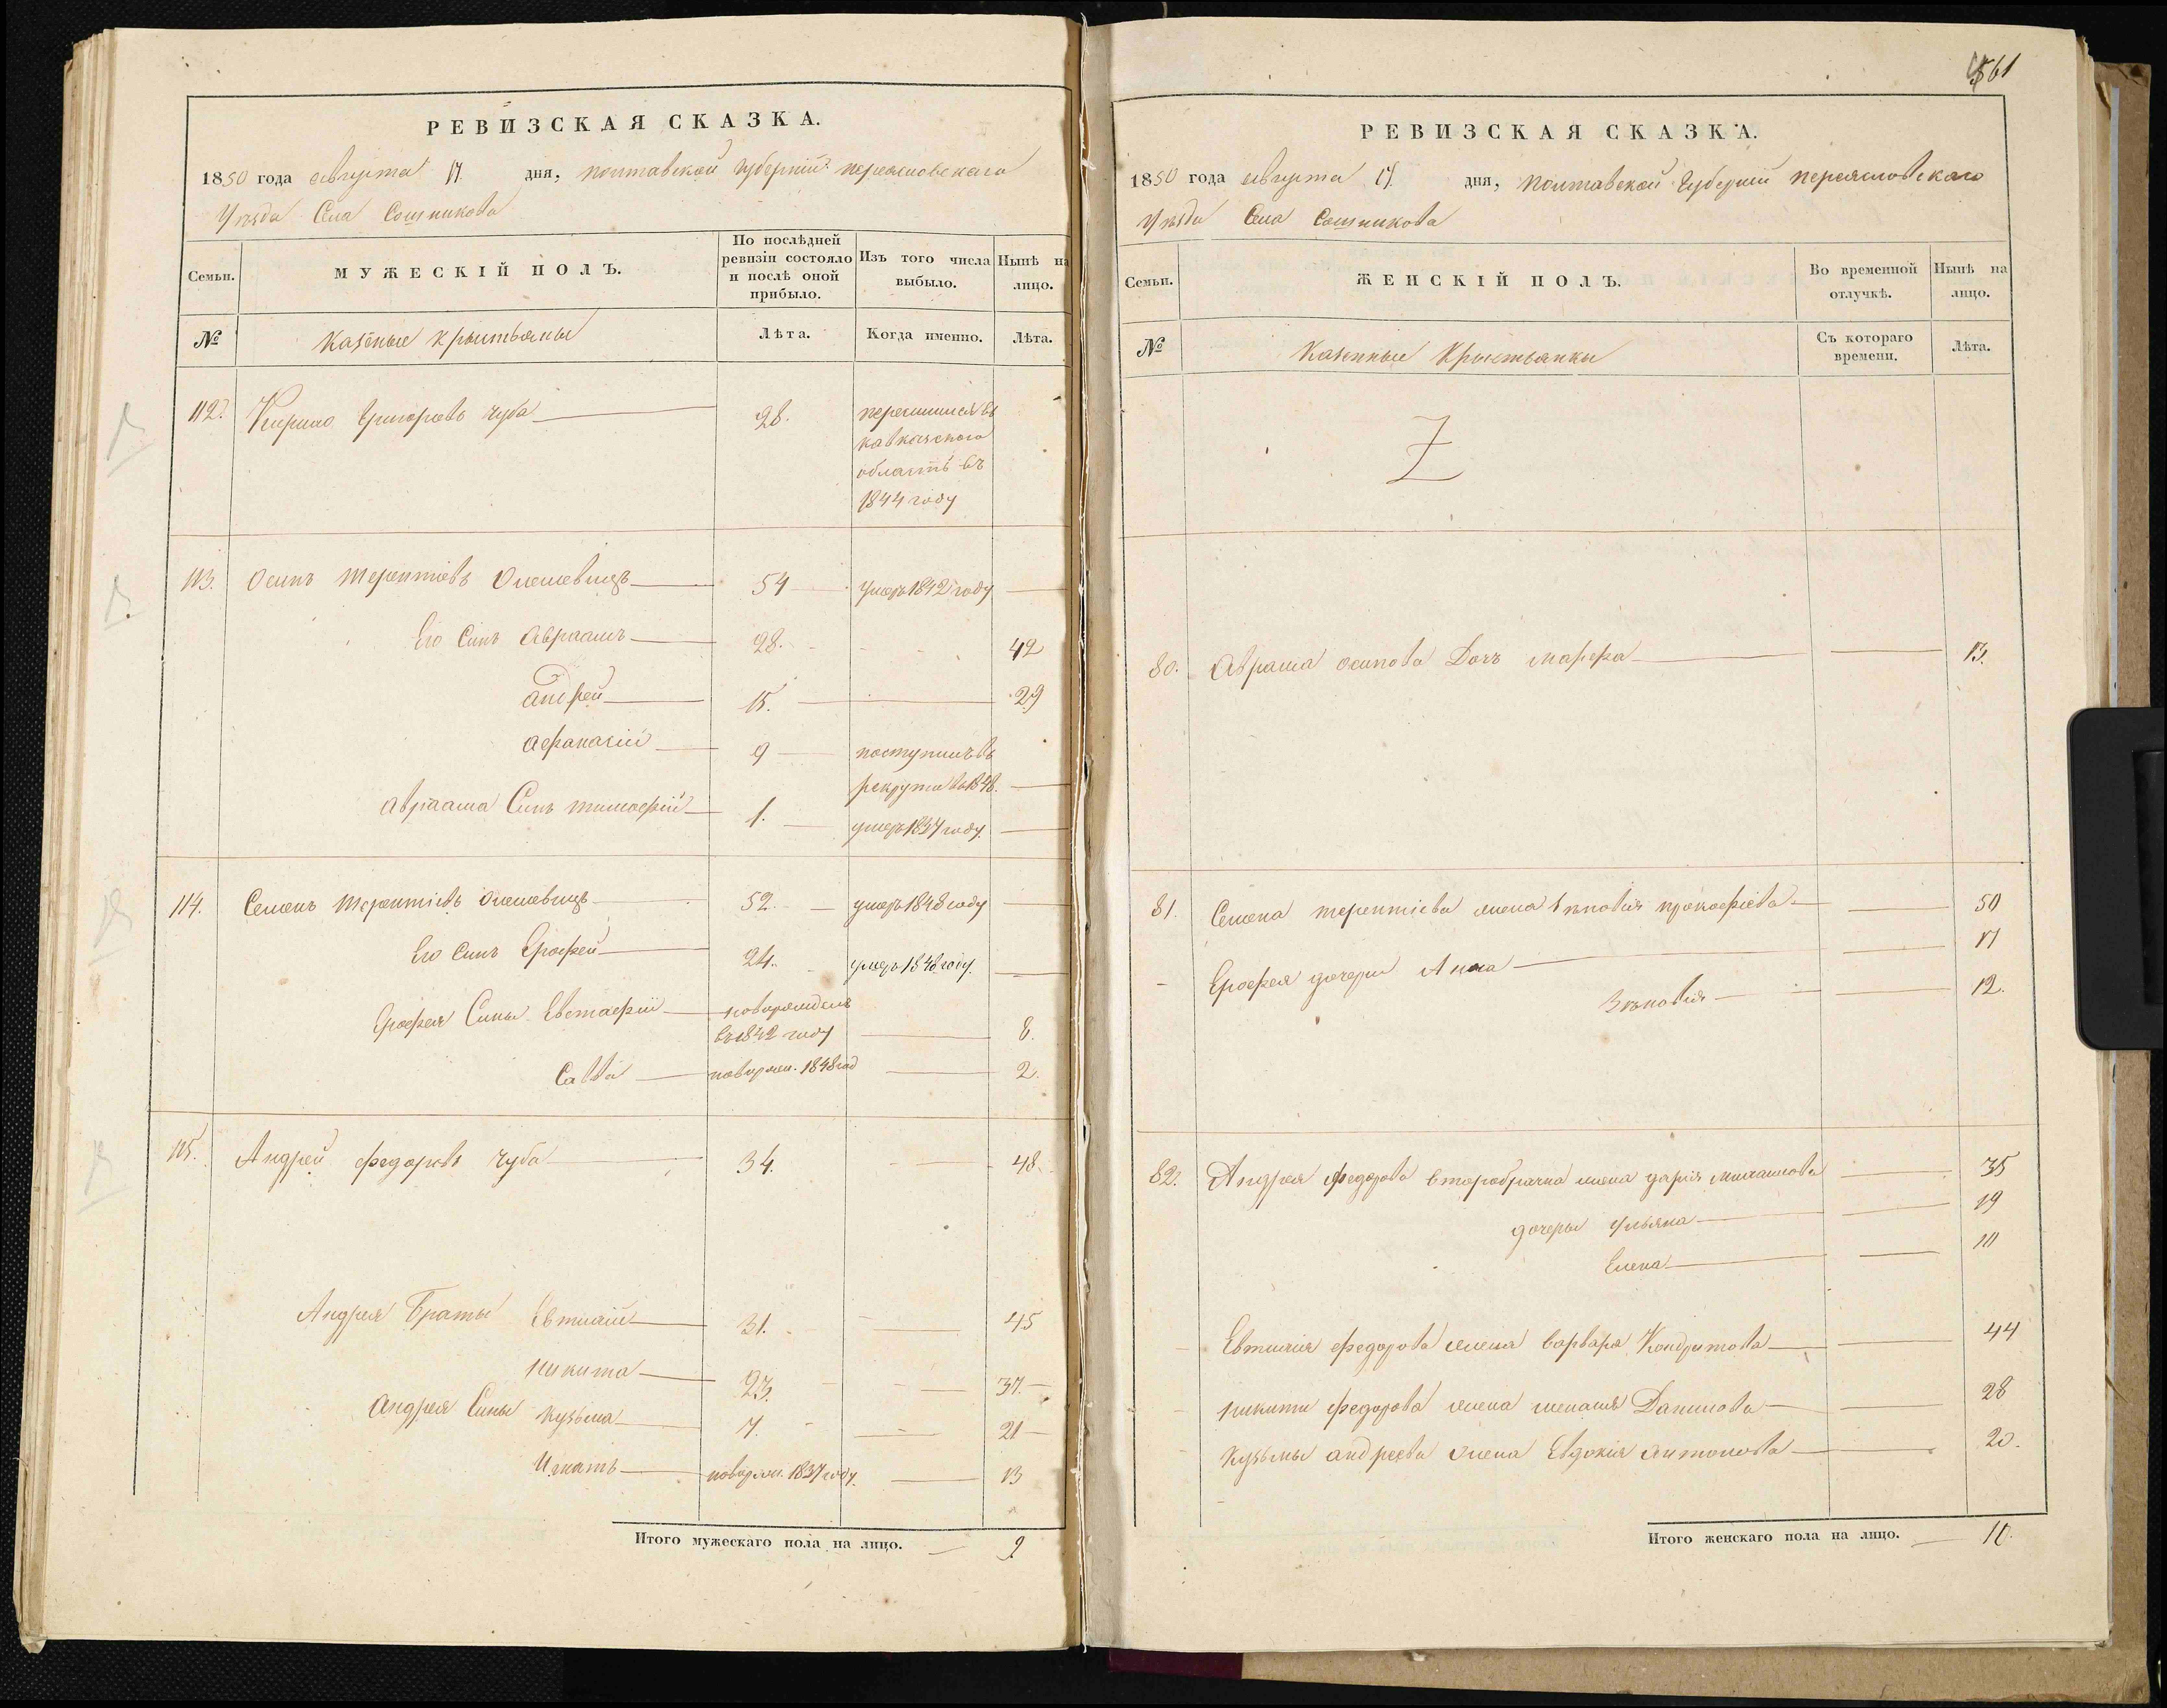 РЕВИЗСКАЯ СКАЗКА.
1850 года августа 17 дня, полтавской губерний переясловскаго
Уѣзда Села Сошникова
Семьи.
МУЖЕСКІЙ ПОЛЪ.
По послѣдней ревизіи состояло и послѣ оной прибыло.
Изъ того числа выбыло.
Нынѣ на лицо.
№
казенные крыстьяны
Лѣта.
Когда именно.
Лѣта.
112. Кирило Григоровъ чуба 28. переишился въ
кавказского
область въ
1844 году
113. Осипъ терентіевъ Олешевицъ 54 умеръ 1842 году
Его Синъ Авраамъ 28. 42
андрей 15. 29
афанасій 9 поступилъ въ
рекрута въ 1848.
авраама Синъ тимофій 1. умеръ 1837 году.
114. Семенъ терентіевъ олешевицъ 52. умеръ 1848 году
Его Синъ Ерофей 24. умеръ 1848 году.
Ерофея Сины Евстафій новорожденъ
въ 1842 году 8.
Савва новорож. 1848 год 2.
115. Андрей федоровъ чуба 34. 48.
Андрея Браты Евтихій 31. 45
никита 23. 37.
андрея Сины кузьма 7. 21
Игнатъ новорож. 1837 году. 13
Итого мужескаго пола на лицо. 9
561
РЕВИЗСКАЯ СКАЗКА.
1850 года августа 17. дня, полтавской губерний переясловскаго
Уѣзда Села Сошникова
Семьи.
ЖЕНСКІЙ ПОЛЪ.
Во временной отлучкѣ.
Нынѣ на лицо.
№
Казенные Крыстьянки
Съ котораго времени.
Лѣта.
80. Аврама осипова Дочъ марфа 13.
81. Семена терентіева жена Зѣновія прокофіева 50
Ерофея дочери Анна 17
Зѣновія 12.
82. Андрея федорова второбрачна жена дарія михаилова 35
дочеры Ульяна 19
Елена
Евтихія федорова жена варвара Кондратова 44
никиты федорова жена меланія Данилова 28
кузьмы андреева жена Евдокія антонова 20.
Итого женскаго пола на лицо. 10.